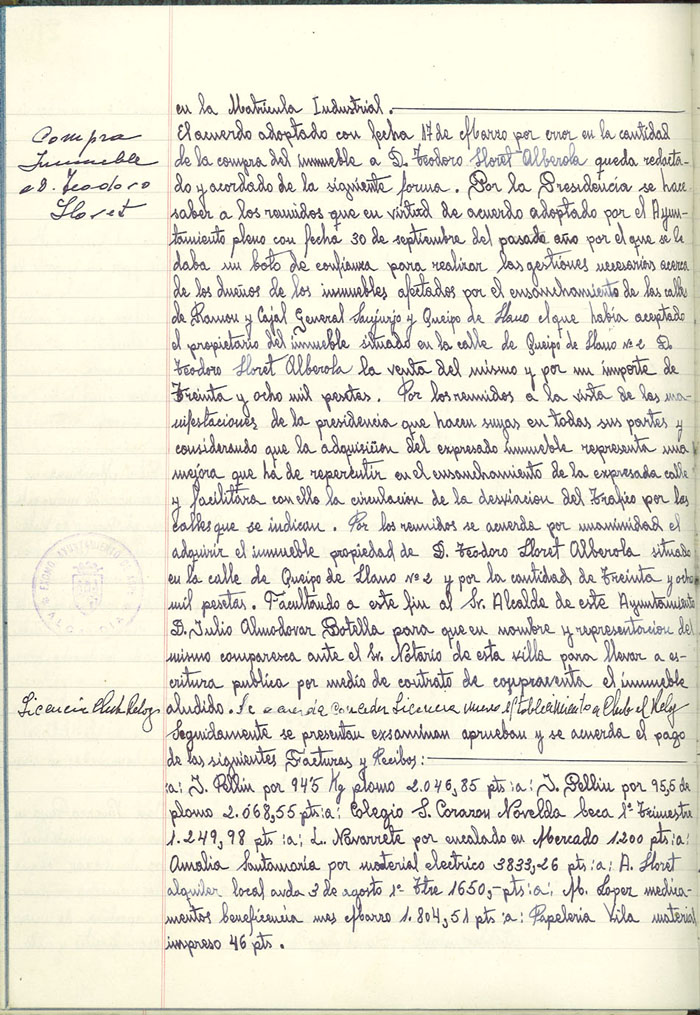 en la Matricula Industrial.
Compra
Inmueble
a D. Teodoro
Lloret
El acuerdo adoptado con fecha 17 de Marzo por error en la cantidad
de la compra del inmueble a D. Teodoro Lloret Alberola queda redacta-
do y acordado de la siguiente forma. Por la Presidencia se hace
saber a los reunidos que en virtud de acuerdo adoptado por el Ayun-
tamiento pleno con fecha 30 de septiembre del pasado año por el que se le
daba un boto de confianza para realizar las gestiones necesarias acerca
de los dueños de los inmuebles afectados por el ensanchamiento de las calles
de Ramon y Cajal General Sanjurjo y Queipo de Llano el que habia aceptado
el propietario del inmueble situado en la calle de Queipo de Llano nº 2 D.
Teodoro Lloret Alberola la venta del mismo y por un importe de
Treinta y ocho mil pesetas. Por los reunidos a la vista de las ma-
nifestaciones de la presidencia que hacen suyas en todas sus partes y
considerando que la adquisicion del expresado inmueble representa una
mejora que ha de repercutir en el ensanchamiento de la expresada calle
y facilitara con ello la circulacion de la desviacion del Trafico por las
calles que se indican. Por los reunidos se acuerda por unanimidad el
adquirir el inmueble propiedad de D. Teodoro Lloret Alberola situado
en la calle de Queipo de Llano nº 2 y por la cantidad de Treinta y ocho
mil pesetas. Facultando a este fin al Sr. Alcalde de este Ayuntamiento
D. Julio Almodovar Botella para que en nombre y representacion del
mismo comparesca ante el Sr. Notario de esta villa para llevar a es-
critura publica por medio de contrato de compraventa el inmueble
Licencia Club Reloy
aludido. Se acuerda conceder Licencia nuevo establecimiento a Club el Reloy
Seguidamente se presentan exsaminan aprueban y se acuerda el pago
de las siguientes Facturas y Recibos:
:a: J. Pellin por 94'5 Kg plomo 2.046,85 pts :a: J. Pellin por 95,5 de
plomo 2.068,55 pts :a: Colegio S. Corazon Novelda beca 1º Trimestre
1.249,98 pts :a: L. Navarrete por encalado en Mercado 1.200 pts :a:
Amalia Santamaria por material electrico 3833,26 pts :a: A. Lloret
alquiler local avda 3 de agosto 1º Ttre 1650,- pts :a: M. Lopez medica-
mentos beneficencia mes Marzo 1.804,51 pts :a: Papeleria Vila material
impreso 46 pts.
AYUNTAMIENTO DE
ALCALDIA